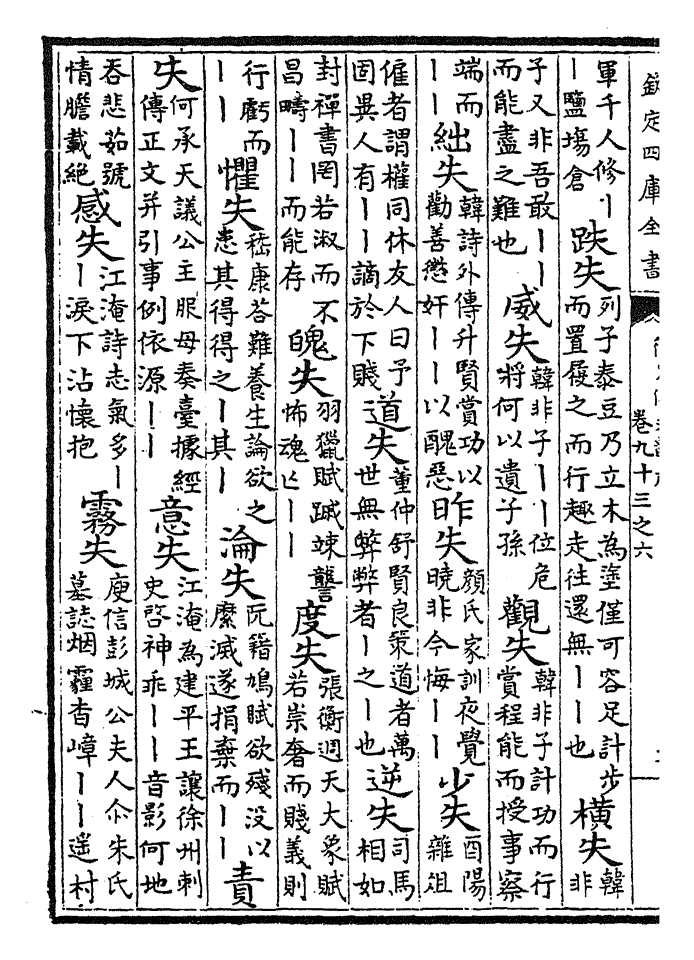 欽定四庫全書
卷九十三之六
軍千人修丨丨鹽塲倉 跌失 列子泰豆乃立木為塗僅可容足計步而置履之而行趣走往還無丨丨也 橫失 韓非
子又非吾敢丨丨而能盡之難也 威失 韓非子丨丨位危將何以遺子孫 觀失 韓非子計功而行賞程能而授事察
端而丨丨 絀失 韓詩外傳升賢賞功以勸善懲奸丨丨以醜惡 昨失 顔氏家訓夜覺曉非今悔丨丨 少失 酉陽雜俎
傕者謂權同休友人曰予固異人有丨丨謫於下賤 道失 董仲舒賢良策道者萬世無弊弊者丨之丨也 逆失 司馬相如
封禪書罔若淑而不昌疇丨丨而能存 魄失 羽獵賦蹴竦讋怖魂亡丨丨 度失 張衡週天大象賦若崇奢而賤義則
行虧而丨丨 懼失 嵇康荅難養生論欲之患其得得之丨其丨 淪失 阮籍鳩賦欲殘没以縻滅遂捐棄而丨丨 責
失 何承天議公主服母奏臺據經傳正文并引事例依源丨丨 意失 江淹為建平王讓徐州刺史啓神乖丨丨音影何地
吞悲茹號情膽載絶 感失 江淹詩志氣多丨丨淚下沾懷抱 霧失 庾信彭城公夫人尒朱氏墓誌烟霾杳嶂丨丨遥村